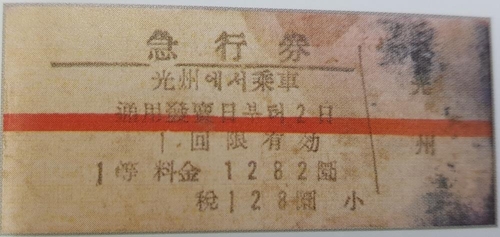 急行券
光州에서乘車
通用發賣日부터2日
1回限有効
1等 料金 1282圜
稅128圜 小
光
州